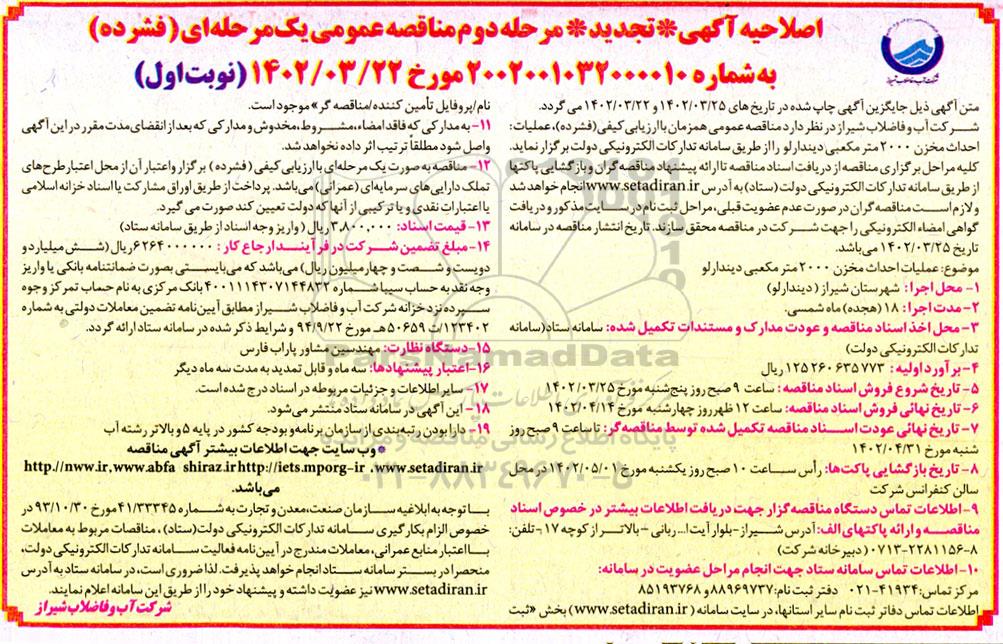 اصلاحیه آگهی *تجدید* مرحله دوم مناقصه عمومی یک مرحله ای (فشرده)
به شماره ۲۰۰۲۰۰۱۰۳۲۰۰۰۰۱۰ مورخ ۱۴۰۲/۰۳/۲۲ (نوبت اول)
شرکت آب و فاضلاب شیراز
متن آگهی ذیل جایگزین آگهی چاپ شده در تاریخ های ۱۴۰۲/۰۳/۲۵ و ۱۴۰۲/۰۳/۲۲ می گردد.
شرکت آب و فاضلاب شیراز در نظر دارد مناقصه عمومی همزمان با ارزیابی کیفی (فشرده)، عملیات:
احداث مخزن ۲۰۰۰ متر مکعبی دیندارلو را از طریق سامانه تدارکات الکترونیکی دولت برگزار نماید.
کلیه مراحل برگزاری مناقصه از دریافت اسناد مناقصه تا ارائه پیشنهاد مناقصه گران و بازگشایی پاکتها
از طریق سامانه تدارکات الکترونیکی دولت (ستاد) به آدرس www.setadiran.ir انجام خواهد شد
و لازم است مناقصه گران در صورت عدم عضویت قبلی، مراحل ثبت نام در سایت مذکور و دریافت
گواهی امضاء الکترونیکی را جهت شرکت در مناقصه محقق سازند. تاریخ انتشار مناقصه در سامانه
تاریخ ۱۴۰۲/۰۳/۲۵ می باشد.
موضوع: عملیات احداث مخزن ۲۰۰۰ متر مکعبی دیندارلو
۱- محل اجرا: شهرستان شیراز (دیندارلو)
۲- مدت اجرا: ۱۸ (هجده) ماه شمسی.
۳- محل اخذ اسناد مناقصه و عودت مدارک و مستندات تکمیل شده: سامانه ستاد (سامانه
تدارکات الکترونیکی دولت)
۴- برآورد اولیه: ۱۲۵۲۶۰۶۳۵۷۷۳ ریال
۵- تاریخ شروع فروش اسناد مناقصه: ساعت ۹ صبح روز پنج شنبه مورخ ۱۴۰۲/۰۳/۲۵
۶- تاریخ نهائی فروش اسناد مناقصه: ساعت ۱۲ ظهر روز چهارشنبه مورخ ۱۴۰۲/۰۴/۱۴
۷- تاریخ نهائی عودت اسناد مناقصه تکمیل شده توسط مناقصه گر: تا ساعت ۹ صبح روز
شنبه مورخ ۱۴۰۲/۰۴/۳۱
۸- تاریخ بازگشایی پاکت ها: رأس ساعت ۱۰ صبح روز یکشنبه مورخ ۱۴۰۲/۰۵/۰۱ در محل
سالن کنفرانس شرکت
۹- اطلاعات تماس دستگاه مناقصه گزار جهت دریافت اطلاعات بیشتر در خصوص اسناد
مناقصه و ارائه پاکتهای الف: آدرس شیراز- بلوار آیت ا... ربانی - بالاتر از کوچه ۱۷- تلفن:
۰۷۱۳-۲۲۸۱۱۵۶-۸ (دبیرخانه شرکت)
۱۰- اطلاعات تماس سامانه ستاد جهت انجام مراحل عضویت در سامانه:
مرکز تماس: ۴۱۹۳۴-۰۲۱ دفتر ثبت نام: ۸۸۹۶۹۷۳۷ و ۸۵۱۹۳۷۶۸
اطلاعات تماس دفاتر ثبت نام سایر استانها، در سایت سامانه (www.setadiran.ir) بخش «ثبت
نام/پروفایل تأمین کننده/مناقصه گر» موجود است.
۱۱- به مدارکی که فاقد امضاء، مشروط، مخدوش و مدارکی که بعد از انقضای مدت مقرر در این آگهی
واصل شود مطلقاً ترتیب اثر داده نخواهد شد.
۱۲- مناقصه به صورت یک مرحله ای با ارزیابی کیفی (فشرده) برگزار و اعتبار آن از محل اعتبار طرح های
تملک دارایی های سرمایه ای (عمرانی) می باشد. پرداخت از طریق اوراق مشارکت یا اسناد خزانه اسلامی
یا اعتبارات نقدی و یا ترکیبی از آنها که دولت تعیین کند صورت می گیرد.
۱۳- قیمت اسناد: ۳,۸۰۰,۰۰۰ ریال (واریز وجه اسناد از طریق سامانه ستاد)
۱۴- مبلغ تضمین شرکت در فرآیند ارجاع کار: ۶۲۶۴۰۰۰۰۰۰ ریال (شش میلیارد و
دویست و شصت و چهار میلیون ریال) می باشد که می بایستی بصورت ضمانتنامه بانکی یا واریز
وجه نقد به حساب سیبا شماره ۴۰۰۱۱۱۴۳۰۷۱۴۴۸۳۲ بانک مرکزی به نام حساب تمرکز وجوه
سپرده نزد خزانه شرکت آب و فاضلاب شیراز مطابق آیین نامه تضمین معاملات دولتی به شماره
۱۲۳۴۰۲/ت ۵۰۶۵۹هـ مورخ ۹۴/۹/۲۲ و شرایط ذکر شده در سامانه ستاد ارائه گردد.
۱۵- دستگاه نظارت: مهندسین مشاور پاراب فارس
۱۶- اعتبار پیشنهادها: سه ماه و قابل تمدید به مدت سه ماه دیگر
۱۷- سایر اطلاعات و جزئیات مربوطه در اسناد درج شده است.
۱۸- این آگهی در سامانه ستاد منتشر می شود.
۱۹- دارا بودن رتبه بندی از سازمان برنامه و بودجه کشور در پایه ۵ و بالاتر رشته آب
*وب سایت جهت اطلاعات بیشتر آگهی مناقصه
http://nww.ir,www.abfa shiraz.irhttp://iets.mporg-ir ,www.setadiran.ir
می باشد.
با توجه به ابلاغیه سازمان صنعت، معدن و تجارت به شماره ۴۱/۳۳۳۴۵ مورخ ۹۳/۱۰/۳۰ در
خصوص الزام بکارگیری سامانه تدارکات الکترونیکی دولت (ستاد)، مناقصات مربوط به معاملات
با اعتبار منابع عمرانی، معاملات مندرج در آیین نامه فعالیت سامانه تدارکات الکترونیکی دولت،
منحصرا در بستر سامانه ستاد انجام خواهد پذیرفت. لذا ضروری است، در سامانه ستاد به آدرس
www.setadiran.ir نیز عضویت داشته و پیشنهاد خود را از طریق این سامانه اعلام نمایند.
شرکت آب و فاضلاب شیراز
ParsNamadData
پایگاه اطلاع رسانی مناقصه و مزایده
۰۲۱-۸۸۳۴۹۶۷۰-۵